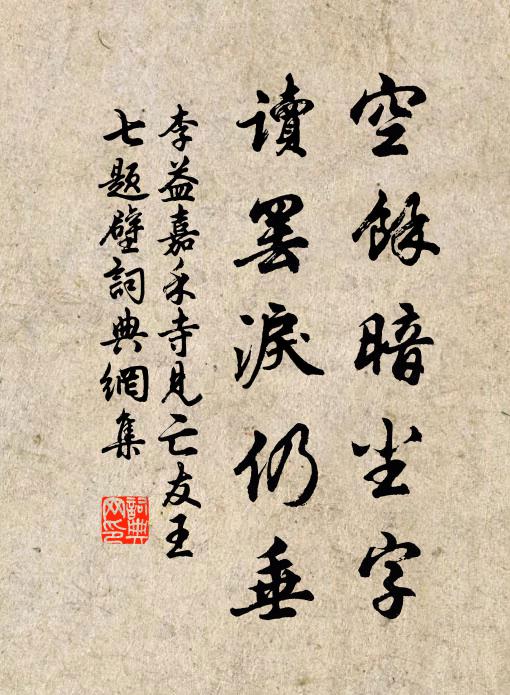 空餘暗尘字
讀罢淚仍垂
李益嘉禾寺見亡友王
七題壁詞典網集
詞典网印